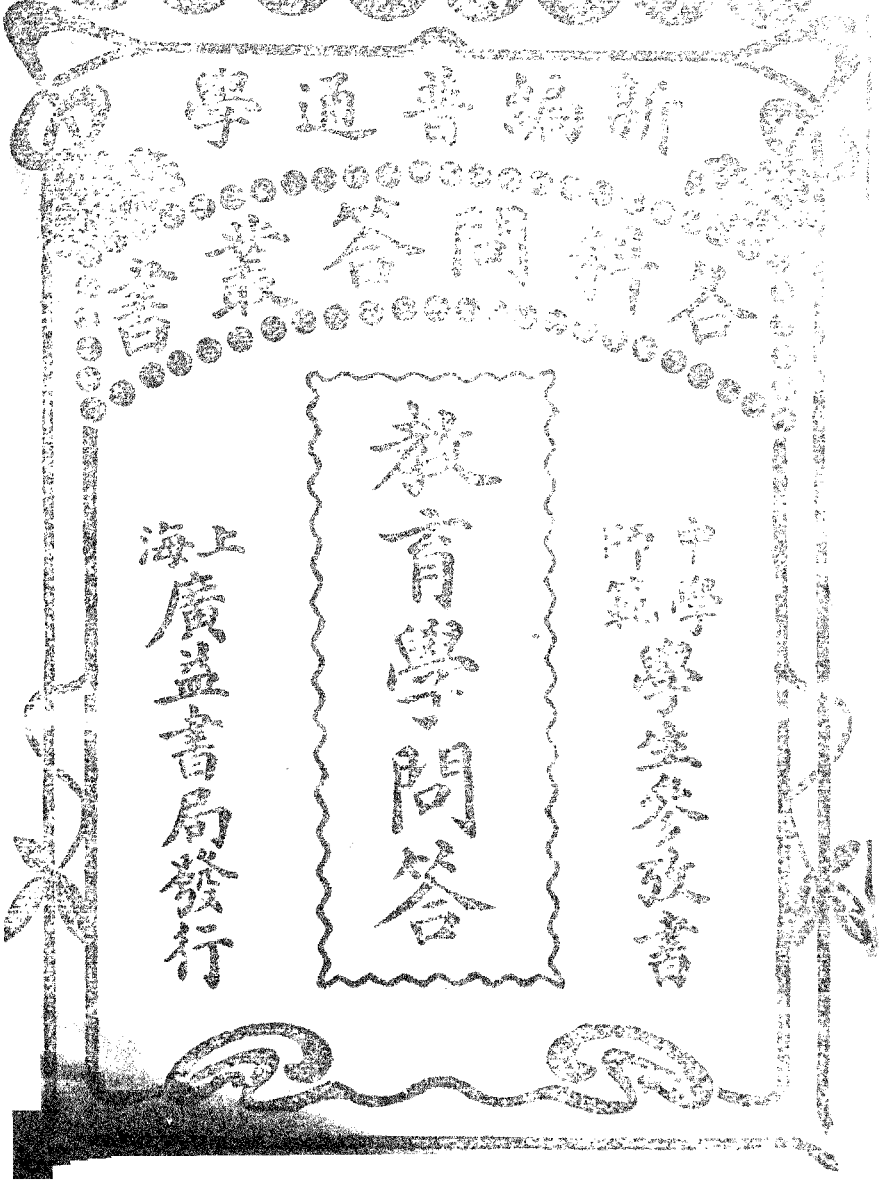 新編普通學
各科問答叢書
中學
師範
學生參攷書
教育學問答
上海
廣益書局發行